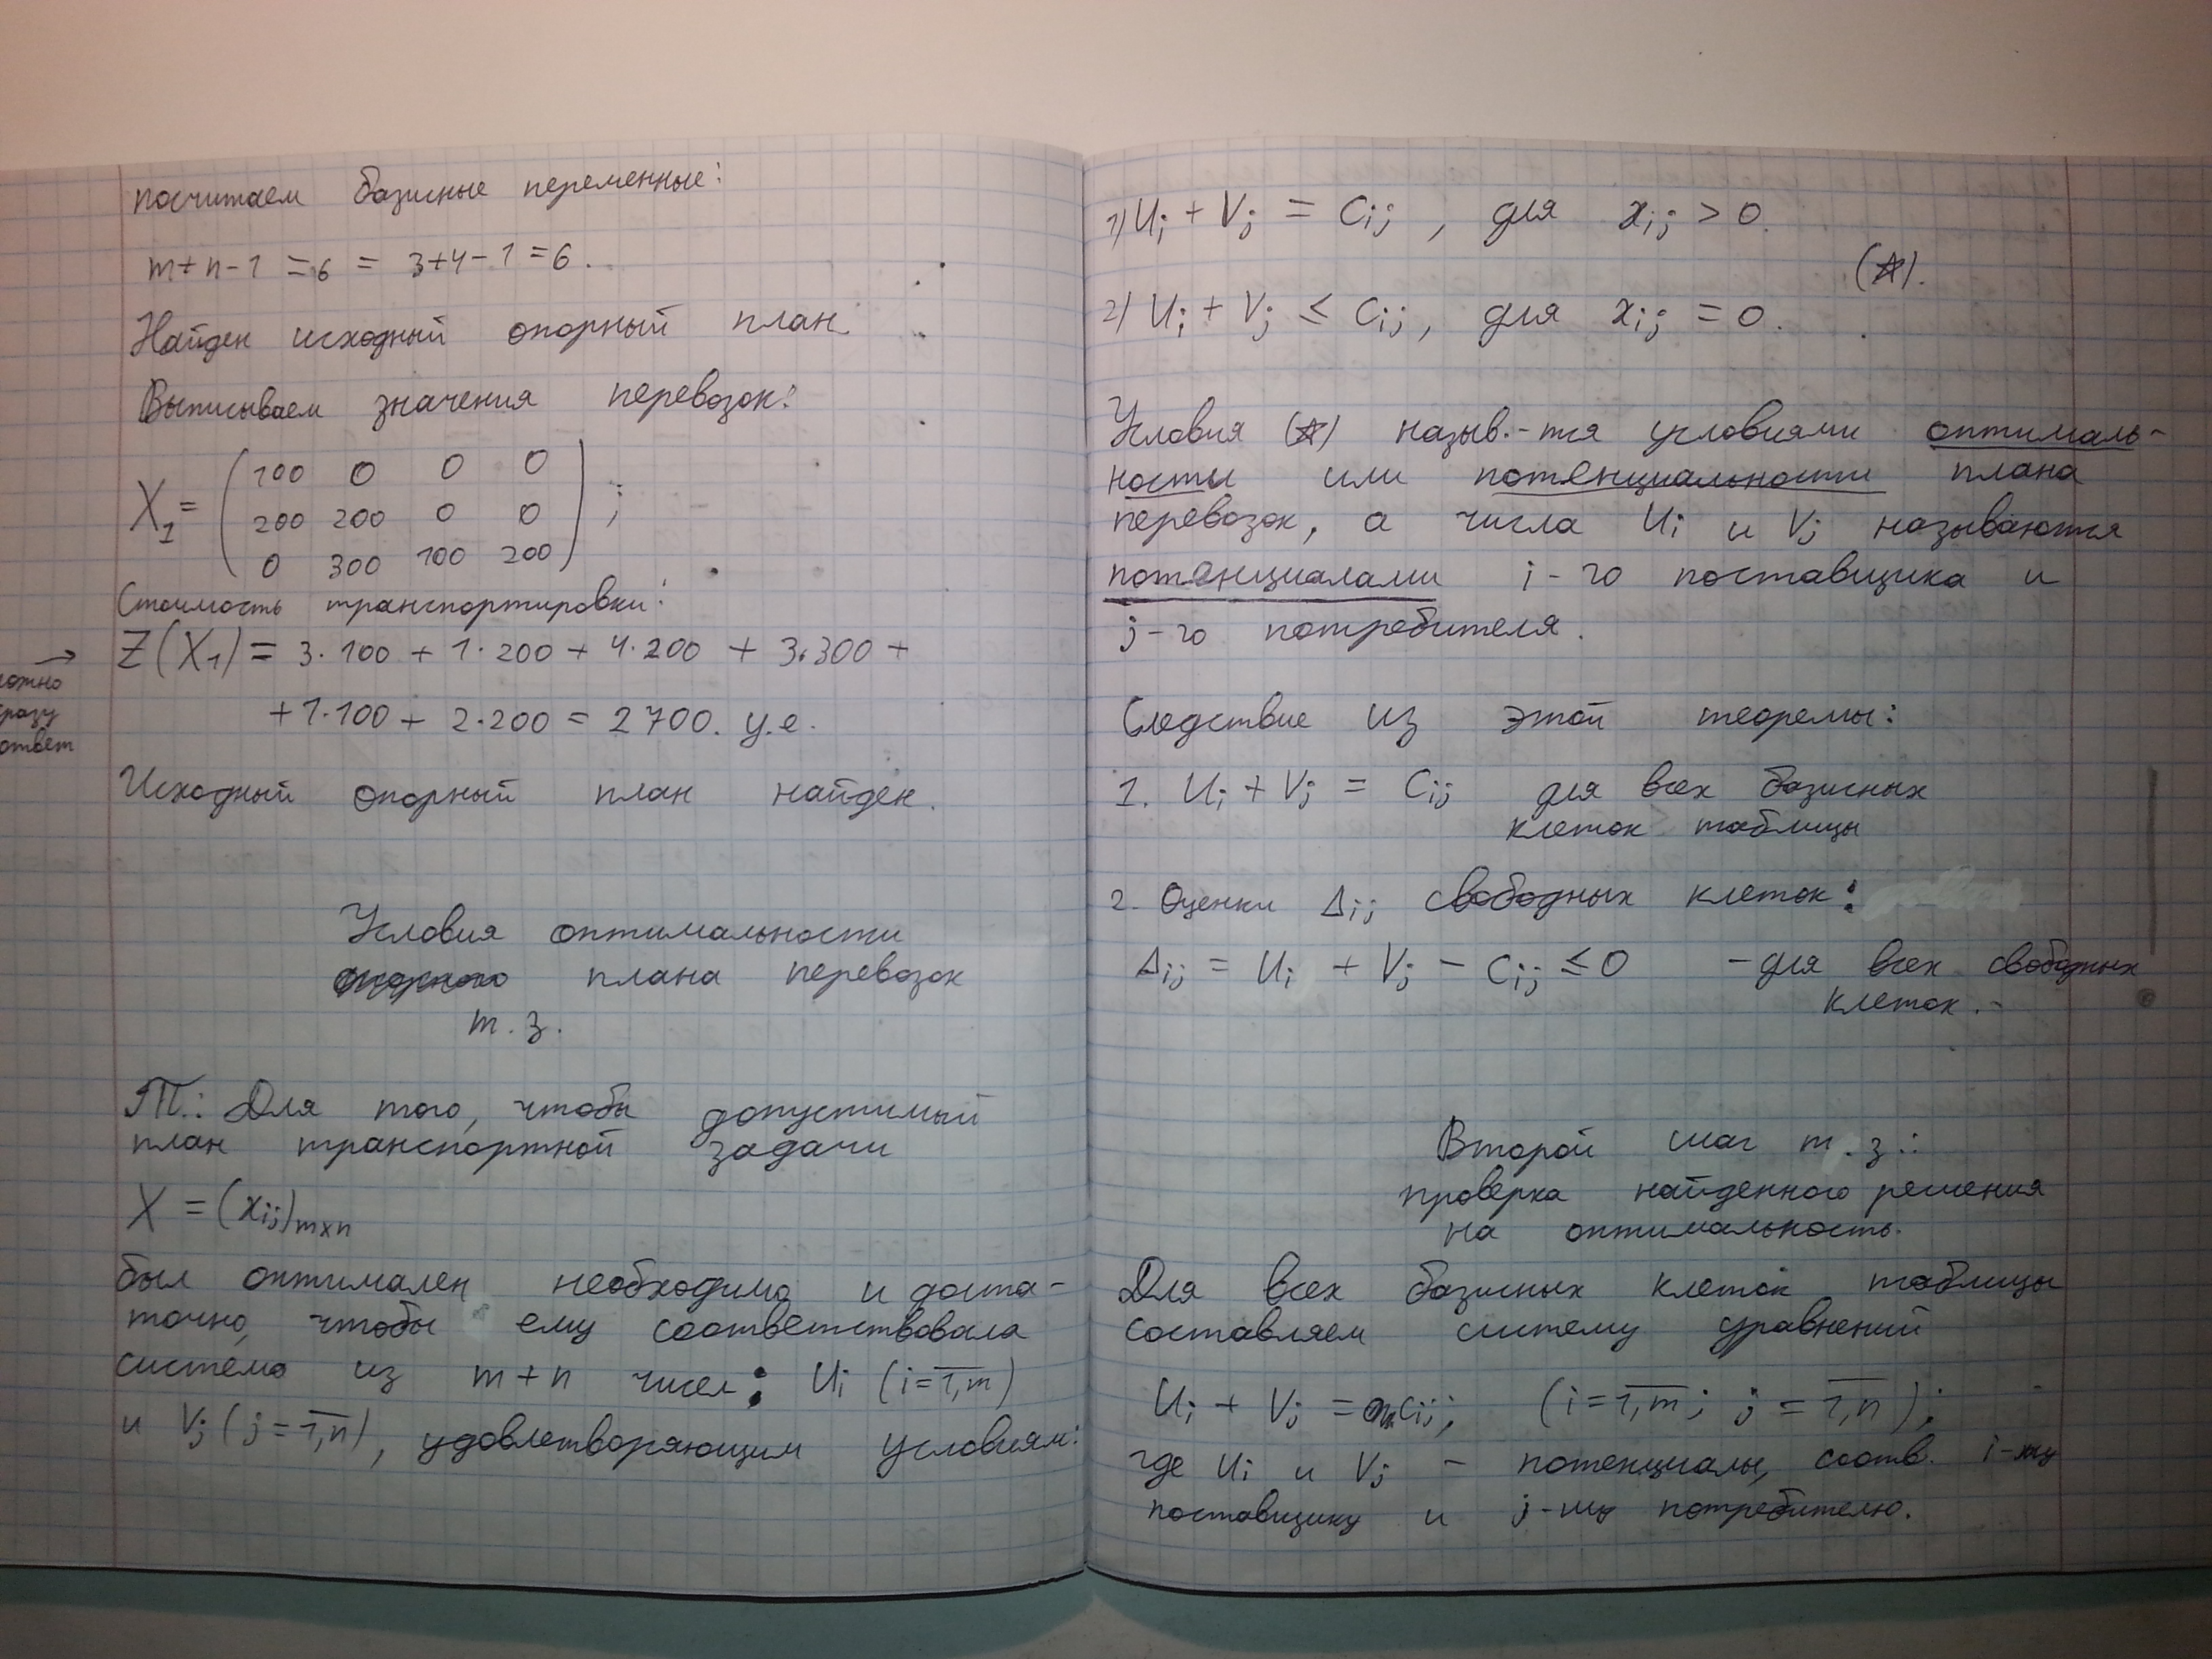 посчитаем базисные переменные:
m+n-1 = 6 = 3+4-1 = 6.
Найден исходный опорный план.
Выписываем значения перевозок:
X₁ = ( 100 0 0 0
200 200 0 0
0 300 100 200 ) ;
Стоимость транспортировки:
Z(X₁) = 3·100 + 1·200 + 4·200 + 3·300 +
+ 1·100 + 2·200 = 2700. у.е.
ответ
Исходный опорный план найден.
Условия оптимальности
плана перевозок
т.з.
Т.: Для того, чтобы допустимый
план транспортной задачи
X = (xij)m×n
был оптимален необходимо и доста-
точно, чтобы ему соответствовала
система из m+n чисел: Ui (i=1,m)
и Vj (j=1,n), удовлетворяющим условиям:
1) Ui + Vj = Cij , для xij > 0.
(☆).
2) Ui + Vj ≤ Cij , для xij = 0.
Условия (☆) назыв.-тся условиями оптималь-
ности или потенциальности плана
перевозок, а числа Ui и Vj называются
потенциалами i-го поставщика и
j-го потребителя.
Следствие из этой теоремы:
1. Ui + Vj = Cij для всех базисных
клеток таблицы
2. Оценки Δij свободных клеток:
Δij = Ui + Vj - Cij ≤ 0 - для всех свободных
клеток.
Второй шаг т.з.:
проверка найденного решения
на оптимальность.
Для всех базисных клеток таблицы
составляем систему уравнений
Ui + Vj = Cij; (i=1,m; j=1,n);
где Ui и Vj - потенциалы, соотв. i-му
поставщику и j-му потребителю.